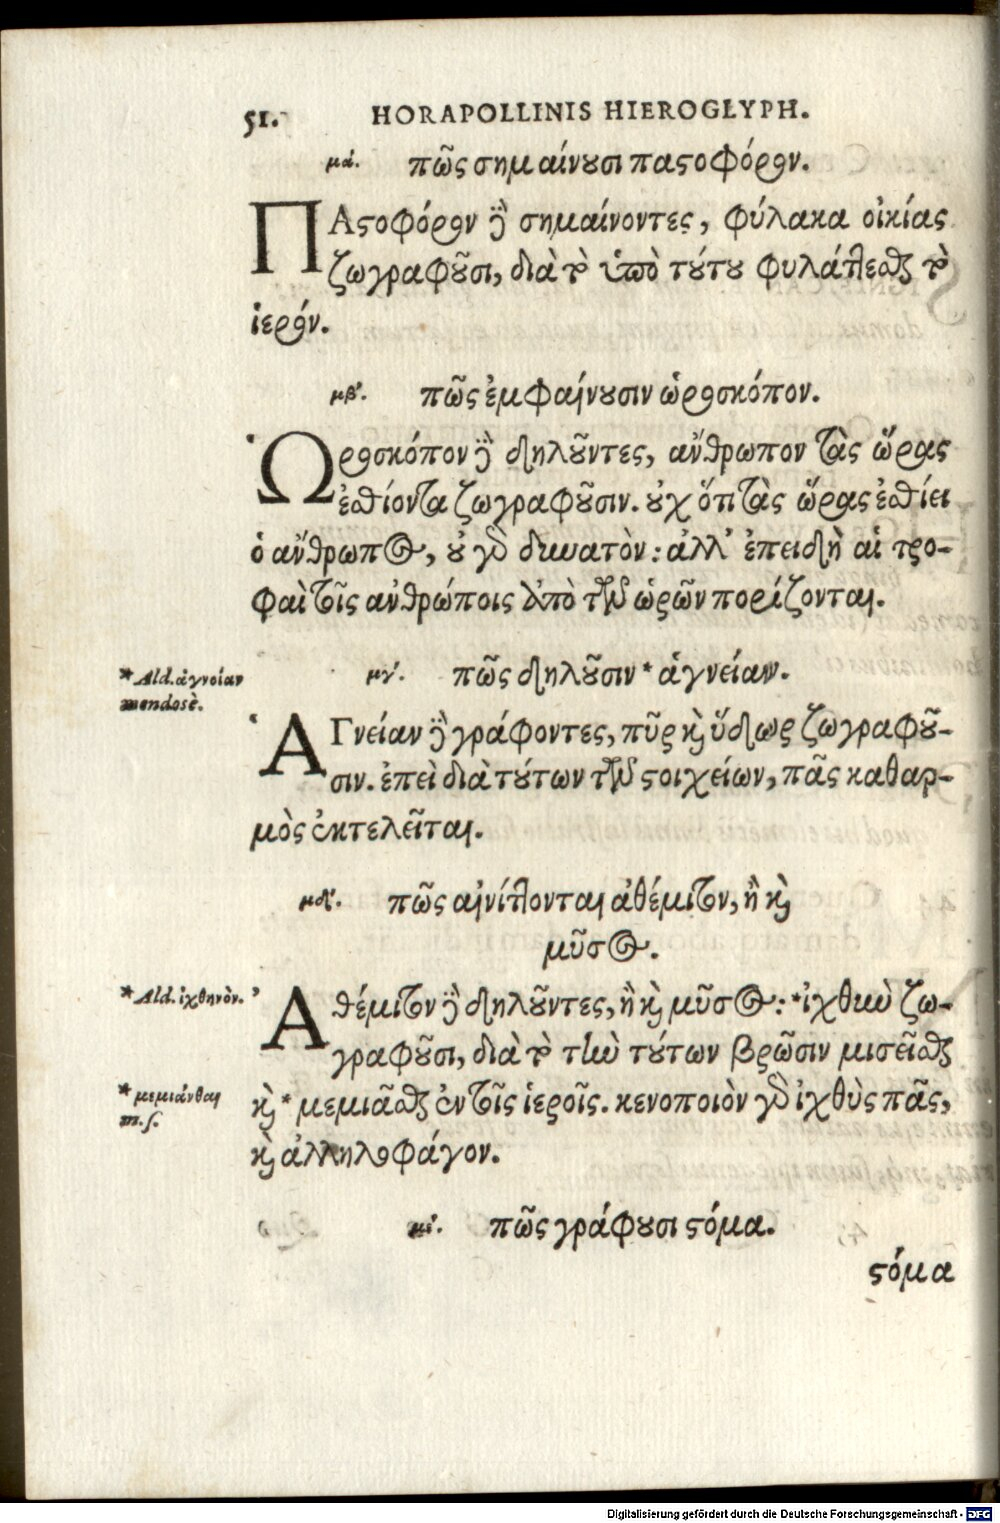 51. HORAPOLLINIS HIEROGLYPH.
μά. πῶς σημαίνουσι παστοφόρον.
ΠΑστοφόρον δὲ σημαίνοντες, φύλακα οἰκίας
ζωγραφοῦσι, διὰ τὸ ὑπὸ τούτου φυλάττεσθαι τὸ
ἱερόν.
μβ'. πῶς ἐμφαίνουσιν ὡροσκόπον.
Ὡροσκόπον δὲ δηλοῦντες, ἄνθρωπον τὰς ὥρας
ἐσθίοντα ζωγραφοῦσιν. οὐχ ὅτι τὰς ὥρας ἐσθίει
ὁ ἄνθρωπος, οὐ γὰρ δυνατὸν: ἀλλ' ἐπειδὴ αἱ τρο-
φαὶ τοῖς ἀνθρώποις ἀπὸ τῶν ὡρῶν πορίζονται.
* Ald. ἀγνοίαν
mendosè.
μγ'. πῶς δηλοῦσιν * ἁγνείαν.
ἉΓνείαν δὲ γράφοντες, πῦρ καὶ ὕδωρ ζωγραφοῦ-
σιν. ἐπεὶ διὰ τούτων τῶν στοιχείων, πᾶς καθαρ-
μὸς ἐκτελεῖται.
μδ'. πῶς αἰνίττονται ἀθέμιτον, ἢ καὶ
μῦσος.
* Ald. ἰχθηνὸν.
Ἀθέμιτον δὲ δηλοῦντες, ἢ καὶ μῦσος: * ἰχθὺν ζω-
γραφοῦσι, διὰ τὸ τὴν τούτων βρῶσιν μισεῖσθαι
* μεμιάνθαι
m. s.
καὶ * μεμιᾶσθαι ἐν τοῖς ἱεροῖς. κενοποιὸν γὰρ ἰχθὺς πᾶς,
καὶ ἀλληλοφάγον.
με'. πῶς γράφουσι στόμα.
στόμα
Digitalisierung gefördert durch die Deutsche Forschungsgemeinschaft - DFG